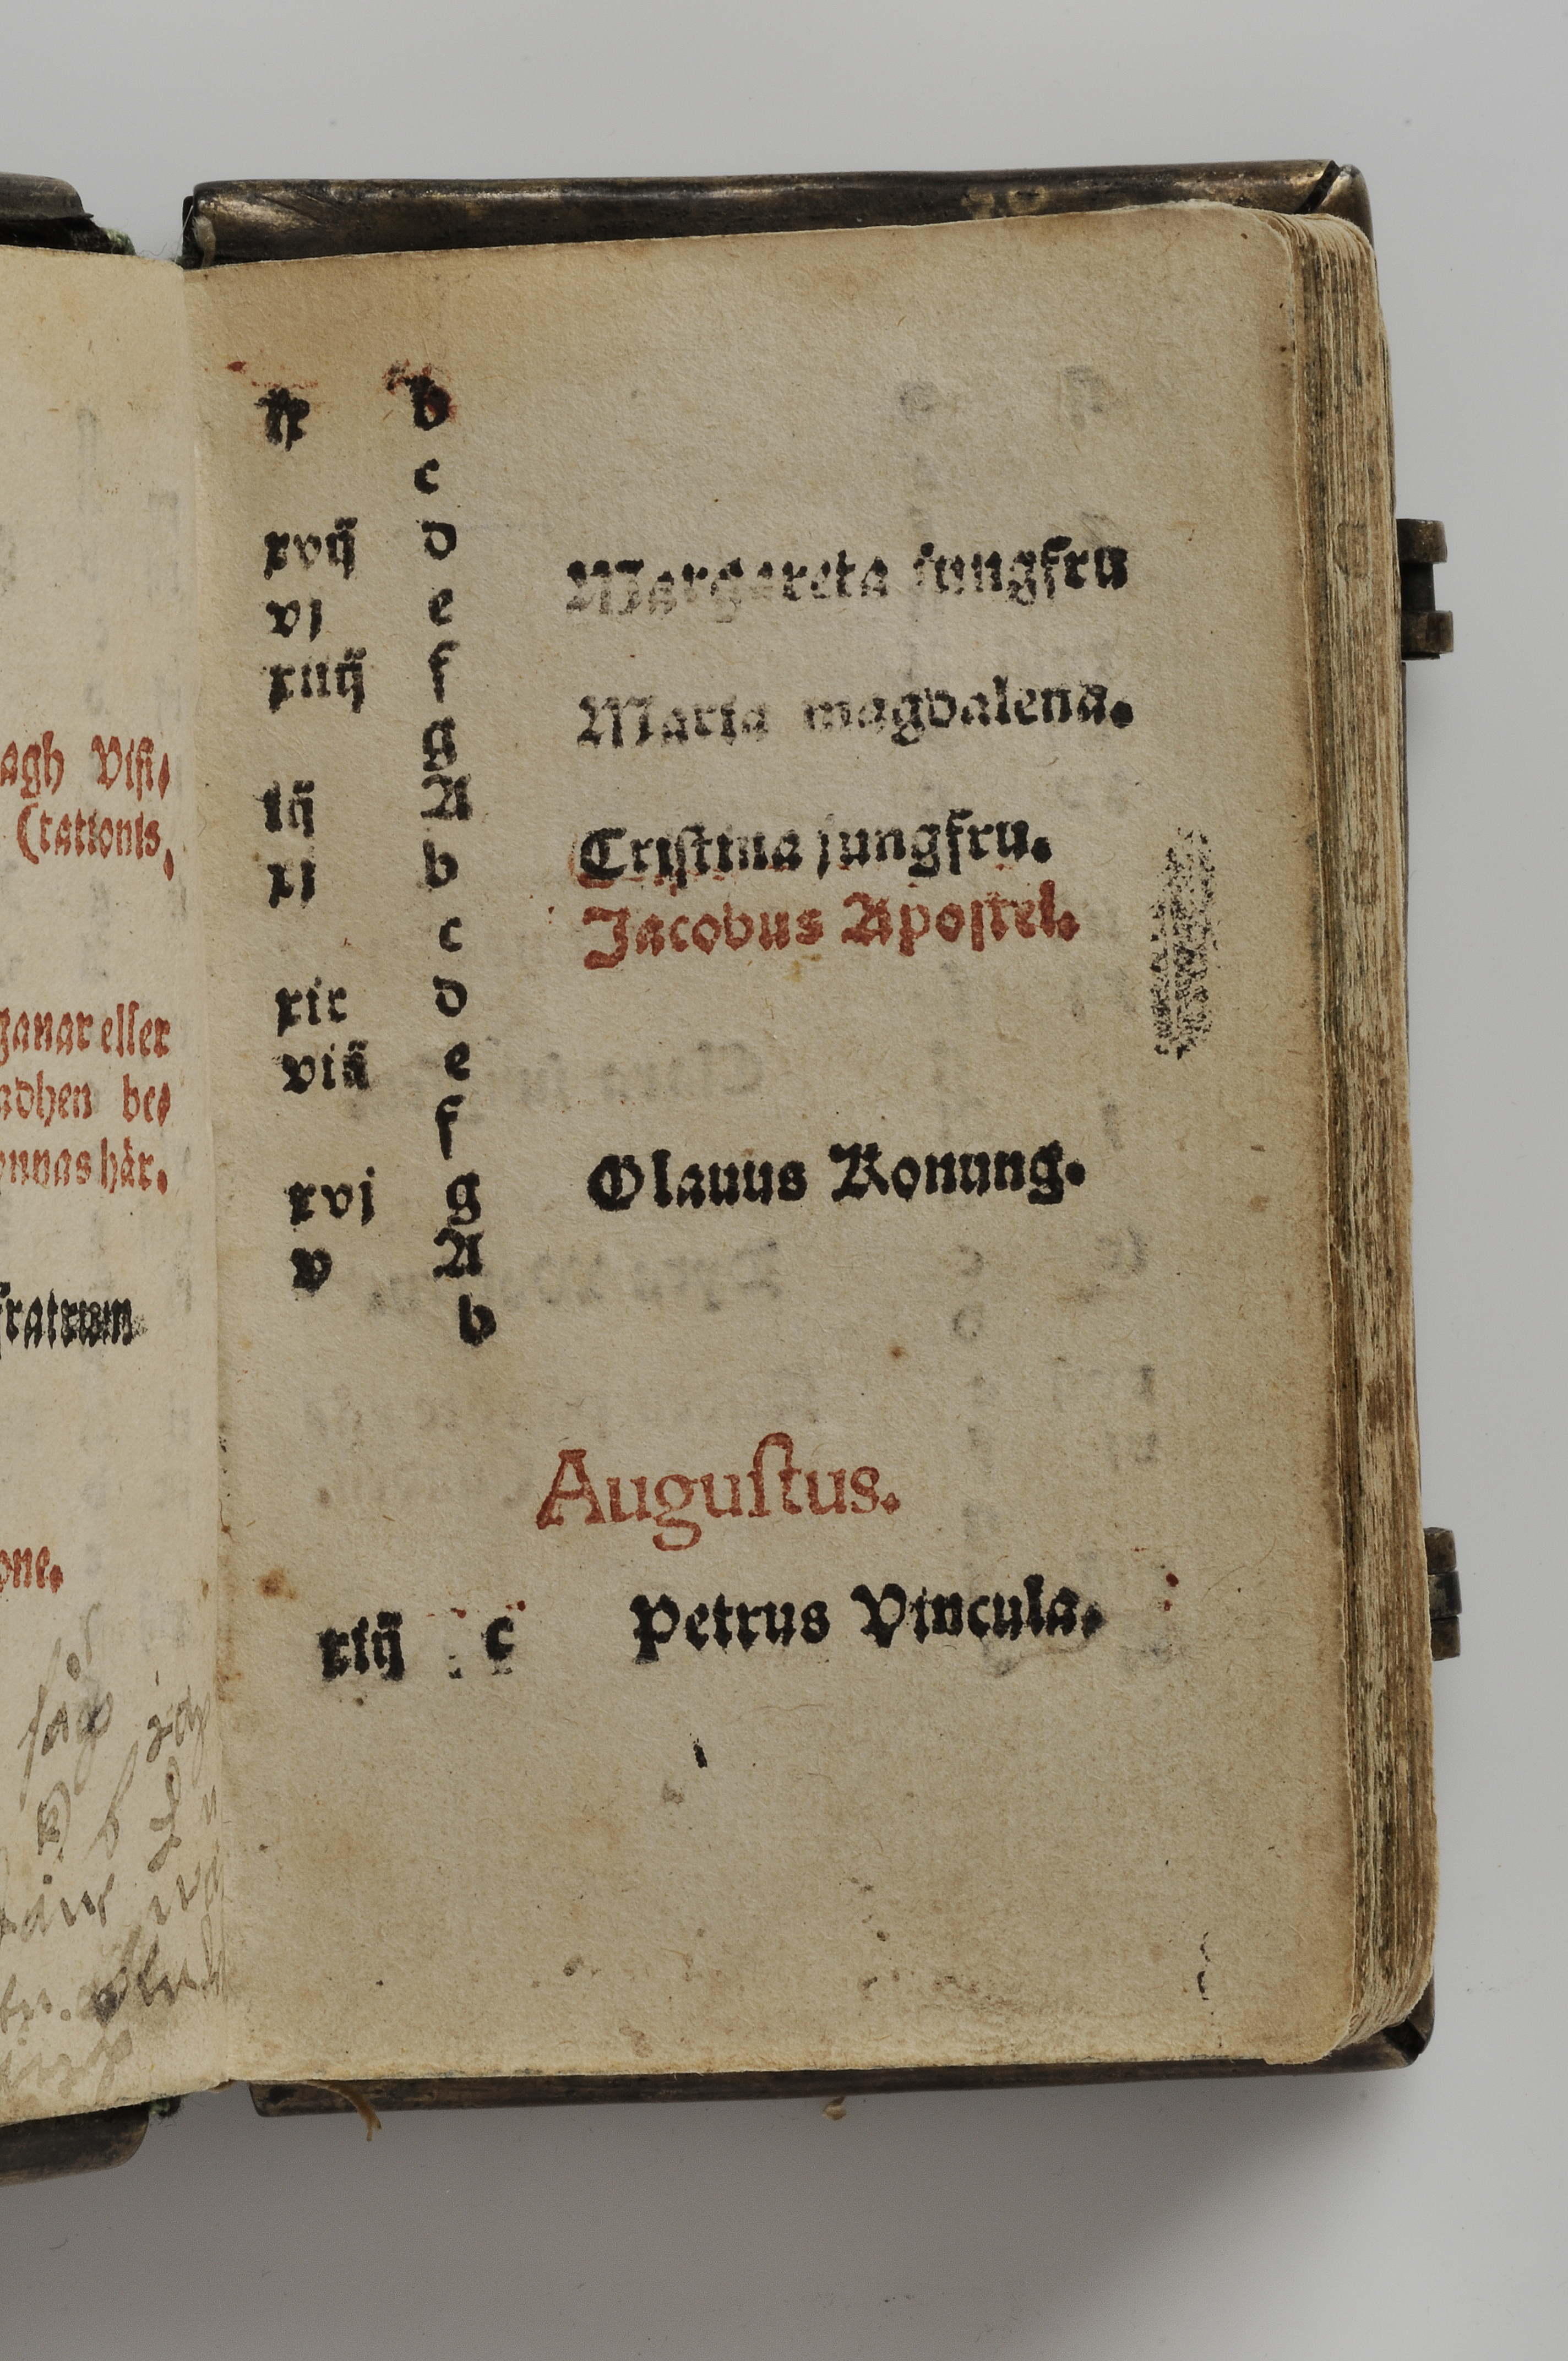 agh Visi,
(tationis,
ganar eller
adhen be,
onnas hår.
fratrum
one.
ix b
c
xvij d Margareta jungfru
vj e
xiiij f Maria magdalena.
g
iij A Cristina jungfru.
xj b Jacobus Apostel.
c
xix d
viij e
f
xvj g Olauus Konung.
v A
b
Augustus.
xiij c Petrus Vincula.